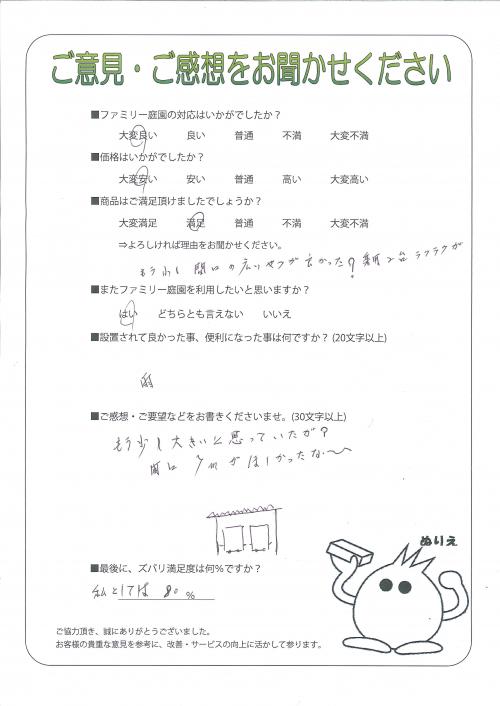 ご意見・ご感想をお聞かせください
■ファミリー庭園の対応はいかがでしたか？
大変良い 良い 普通 不満 大変不満
■価格はいかがでしたか？
大変安い 安い 普通 高い 大変高い
■商品はご満足頂けましたでしょうか？
大変満足 満足 普通 不満 大変不満
⇒よろしければ理由をお聞かせください。
もう少し間口の広いやつが良かった？ 2台ラクラクが
■またファミリー庭園を利用したいと思いますか？
はい どちらとも言えない いいえ
■設置されて良かった事、便利になった事は何ですか？(20文字以上)
雨
■ご感想・ご要望などをお書きくださいませ。(30文字以上)
もう少し大きいと思っていたが？
間口 7mがほしかったな〜
ぬりえ
■最後に、ズバリ満足度は何％ですか？
私としては 80 %
ご協力頂き、誠にありがとうございました。
お客様の貴重な意見を参考に、改善・サービスの向上に活かして参ります。